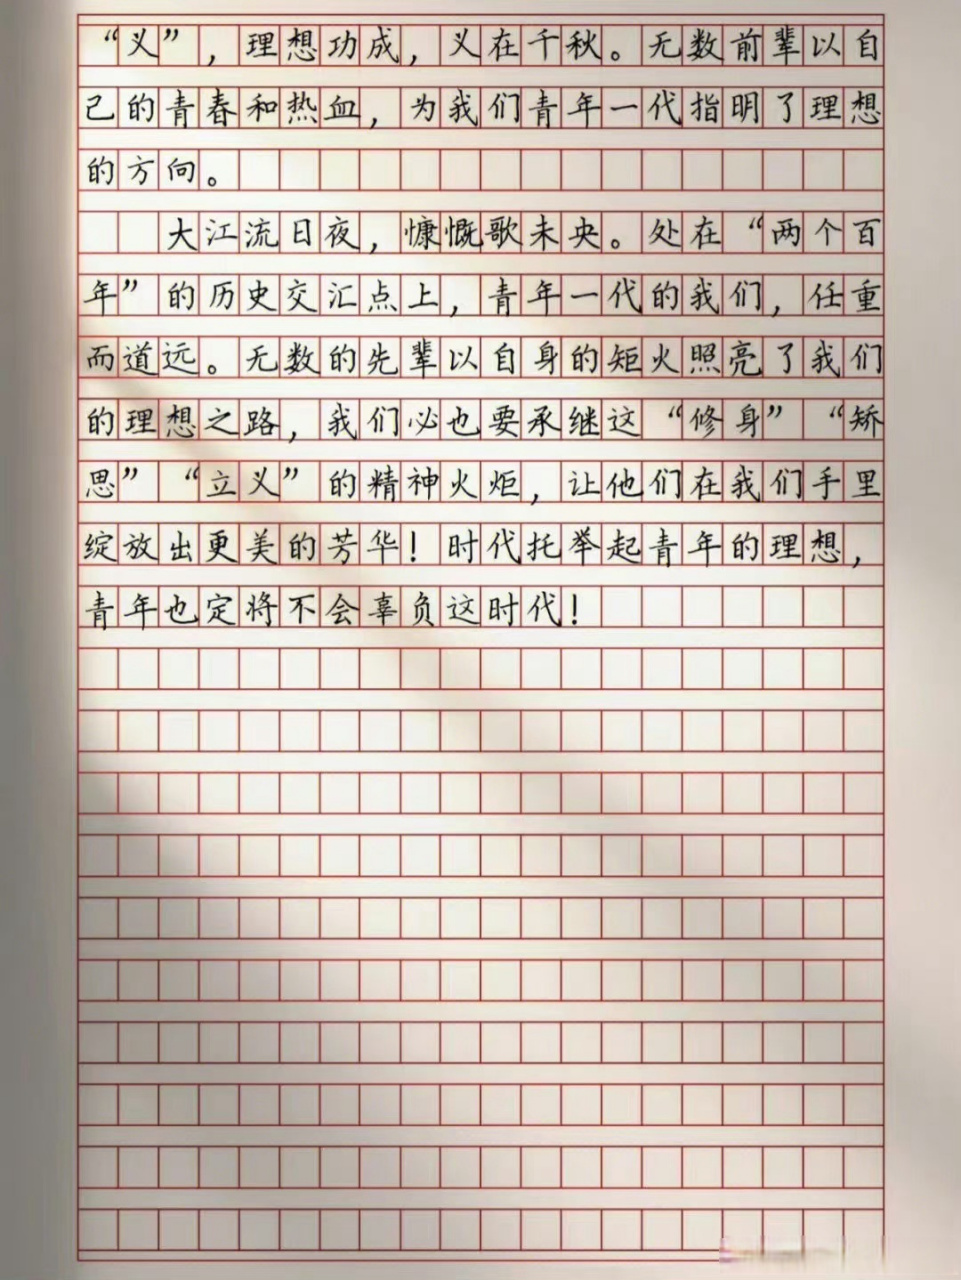 “义”，理想功成，义在千秋。无数前辈以自
己的青春和热血，为我们青年一代指明了理想
的方向。
大江流日夜，慷慨歌未央。处在“两个百
年”的历史交汇点上，青年一代的我们，任重
而道远。无数的先辈以自身的矩火照亮了我们
的理想之路，我们必也要承继这“修身”“矫
思”“立义”的精神火炬，让他们在我们手里
绽放出更美的芳华！时代托举起青年的理想，
青年也定将不会辜负这时代！